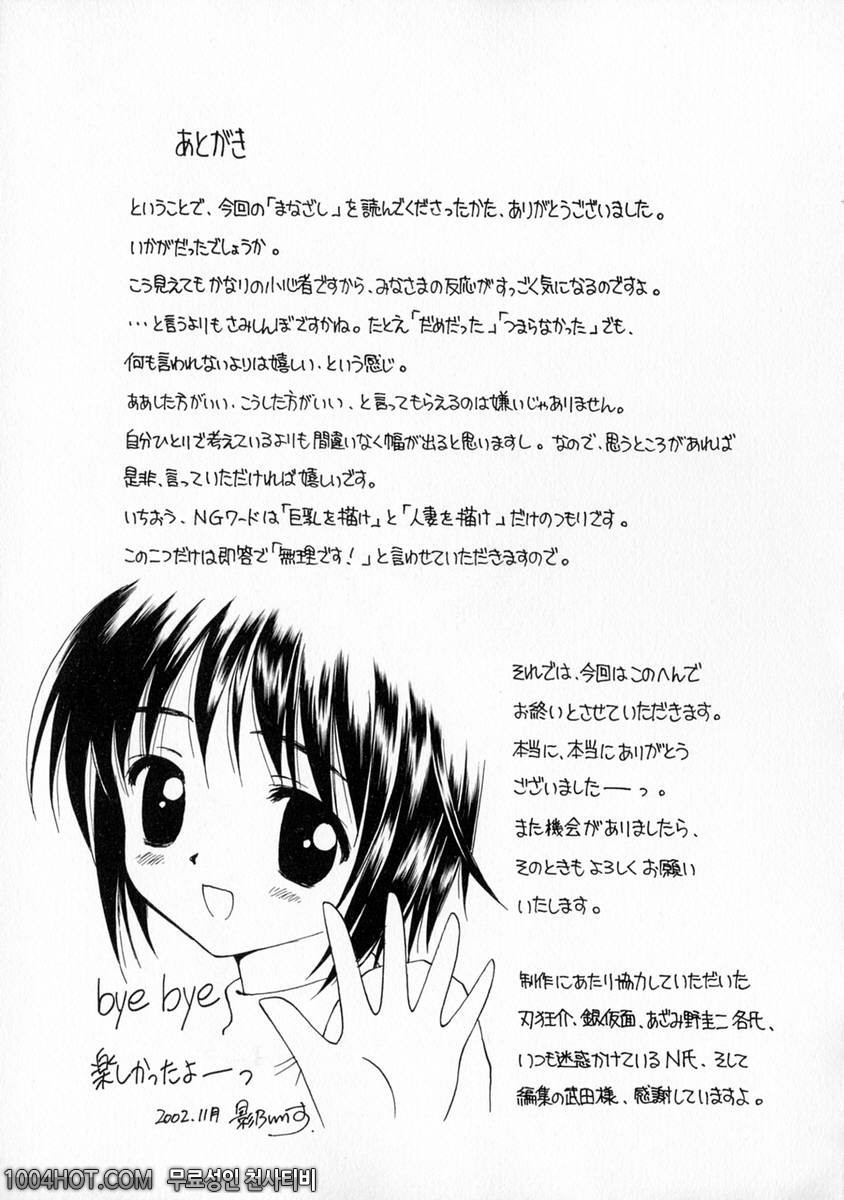 あとがき
ということで、今回の「まなざし」を読んでくださったかた、ありがとうございました。
いかがだったでしょうか。
こう見えてもかなりの小心者ですから、みなさまの反応がすっごく気になるのですよ。
…と言うよりもさみしんぼですかね。たとえ「だめだった」「つまらなかった」でも、
何も言われないよりは嬉しい、という感じ。
ああした方がいい、こうした方がいい、と言ってもらえるのは嫌いじゃありません。
自分ひとりで考えているよりも間違いなく幅が出ると思いますし。なので、思うところがあれば
是非、言っていただければ嬉しいです。
いちおう、NGワードは「巨乳を描け」と「人妻を描け」だけのつもりです。
この二つだけは即答で「無理です！」と言わせていただきますので。
それでは、今回はこのへんで
お終いとさせていただきます。
本当に、本当にありがとう
ございましたーっ。
また機会がありましたら、
そのときもよろしくお願い
いたします。
制作にあたり協力していただいた
刃狂介、銀仮面、あざみ野圭二各氏、
いつも迷惑かけているN氏、そして
編集の武田様、感謝していますよ。
bye bye
楽しかったよーっ
2002.11月
1004HOT.COM 무료성인 천사티비